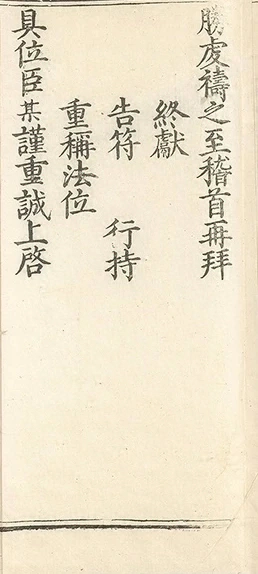 勝虔禱之至稽首再拜
終獻
告符　行持
重稱法位
具位臣某謹重誠上啓